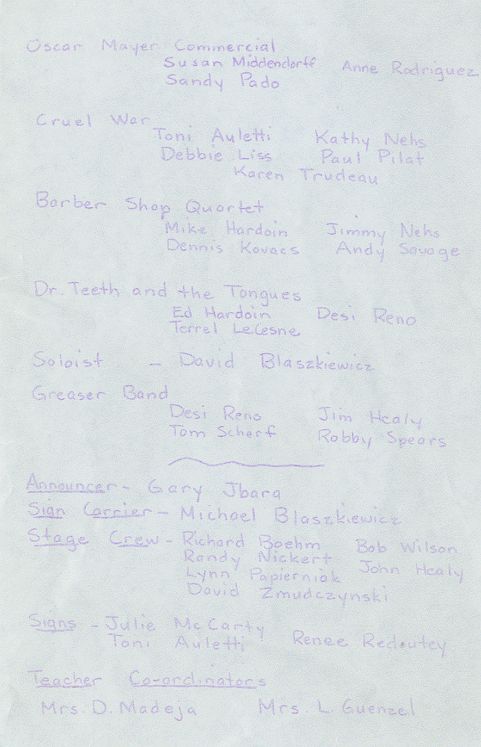 Oscar Mayer Commercial
Susan Middendorff Anne Rodriguez
Sandy Pado
Cruel War
Toni Auletti Kathy Nehs
Debbie Liss Paul Pilat
Karen Trudeau
Barber Shop Quartet
Mike Hardoin Jimmy Nehs
Dennis Kovacs Andy Savage
Dr. Teeth and the Tongues
Ed Hardoin Desi Reno
Terrel LeCesne
Soloist - David Blaszkiewicz
Greaser Band
Desi Reno Jim Healy
Tom Scharf Robby Spears
Announcer - Gary Jbara
Sign Carrier - Michael Blaszkiewicz
Stage Crew - Richard Boehm Bob Wilson
Randy Nickert John Healy
Lynn Papierniak
David Zmudczynski
Signs - Julie McCarty
Toni Auletti Renee Redoutey
Teacher Co-ordinators
Mrs. D. Madeja Mrs. L. Guenzel